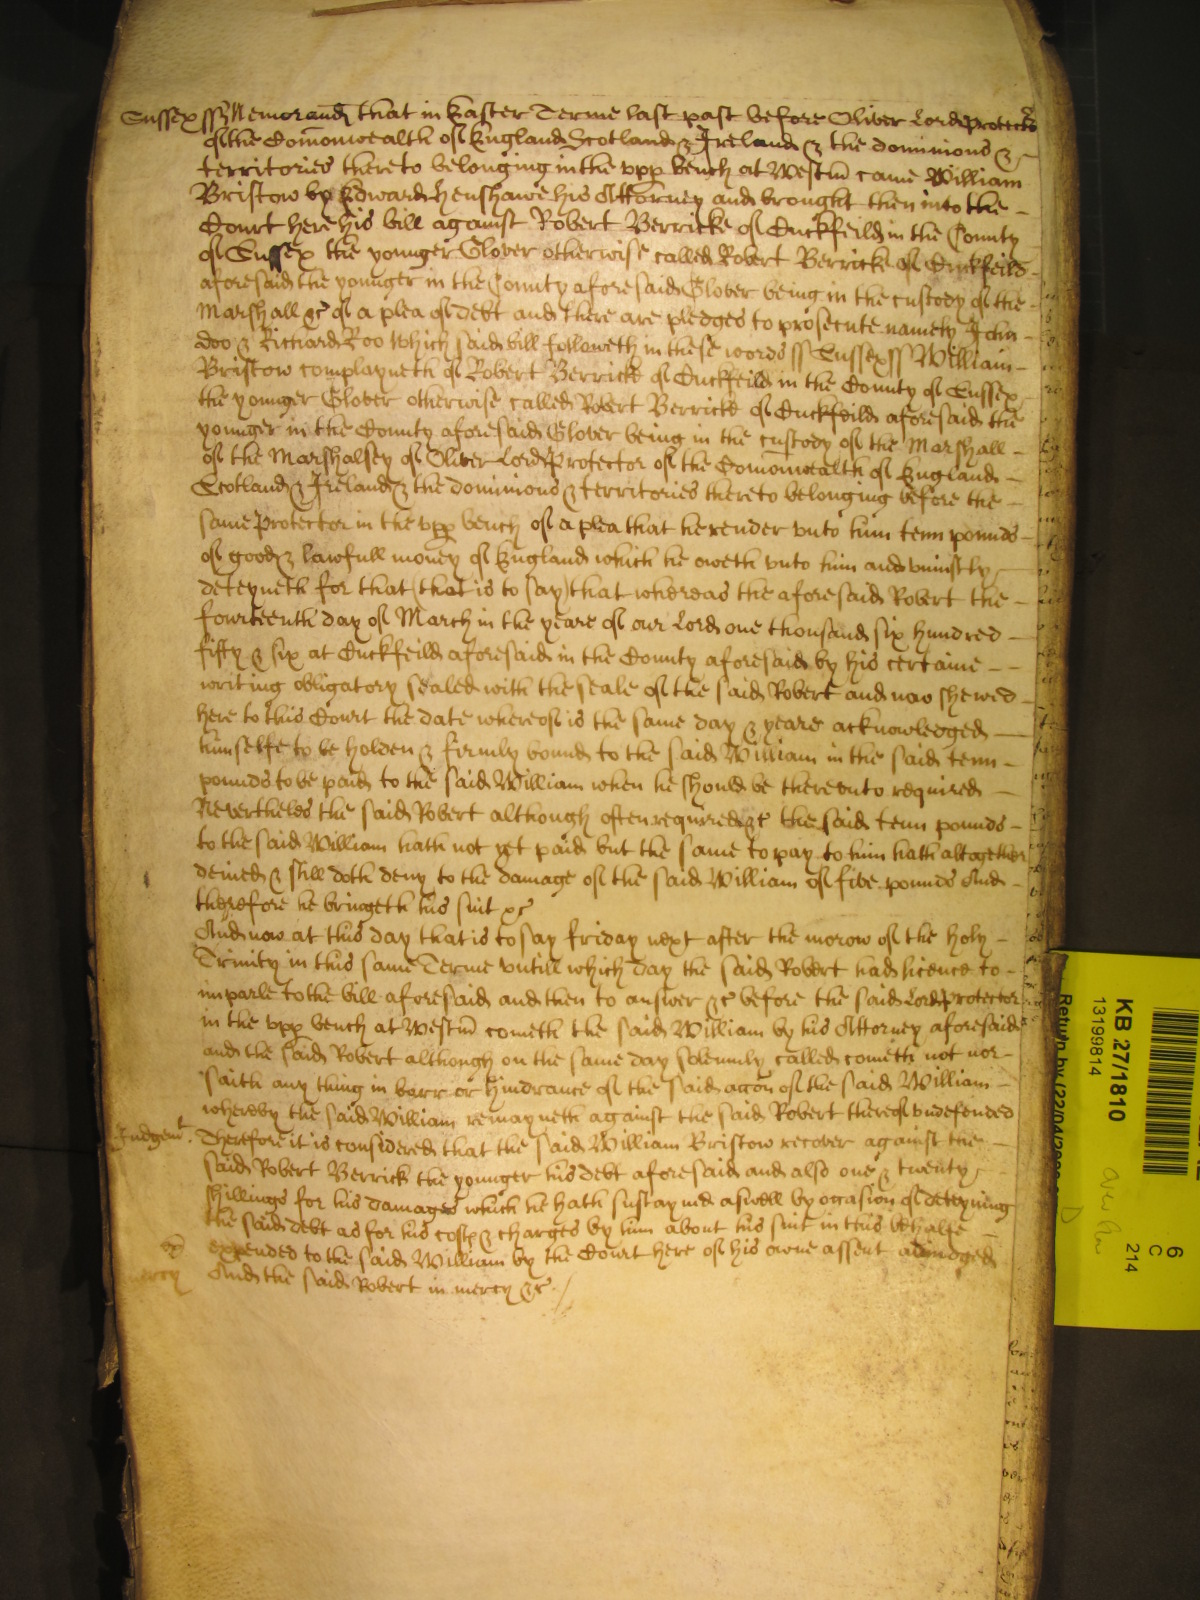 Sussex ss Memorand that in Easter Terme last past before Oliver Lord Protector
of the Comonwealth of England Scotland & Ireland & the dominions &
territories thereto belonging in the upp bench at Westm came William
Bristow by Edward Henshawe his Attorney and brought then into the
Court here his bill against Robert Berricke of Cuckfeild in the County
of Sussex the younger Glover otherwise called Robert Berrick of Cuckfeild
aforesaid the younger in the County aforesaid Glover being in the custody of the
Marshall &c of a plea of debt and there are pledges to prosecute namely John
doo & Richard Roo Which said bill followeth in these words ss Sussex ss William
Bristow complayneth of Robert Berrick of Cuckfeild in the County of Sussex
the younger Glover otherwise called Robert Berrick of Cuckfeild aforesaid the
younger in the County aforesaid Glover being in the custody of the Marshall
of the Marshalsey of Oliver Lord Protector of the Comonwealth of England
Scotland & Ireland & the dominions & territories thereto belonging before the
same Protector in the upp bench of a plea that he render unto him tenn pounds
of good & lawfull money of England which he oweth unto him and uniustly
deteyneth for that (that is to say) that whereas the aforesaid Robert the
fowrteenth day of March in the yeare of our Lord one thousand six hundred
fifty & six at Cuckfeild aforesaid in the County aforesaid by his certaine
writing obligatory sealed with the seale of the said Robert and now shewed
here to this Court the date whereof is the same day & yeare acknowledged
himselfe to be holden & firmly bound to the said William in the said tenn
pounds to be paid to the said William when he should be thereunto required
Neverthelesse the said Robert although often required &c the said tenn pounds
to the said William hath not yet paid but the same to pay to him hath altogether
denied & still doth deny to the damage of the said William of five pounds And
therefore he bringeth his suit &c
And now at this day that is to say Friday next after the morow of the holy
Trinity in this same Terme untill which day the said Robert had licence to
imparle to the bill aforesaid and then to answer &c before the said Lord Protector
in the upp bench at Westm cometh the said William by his Attorney aforesaid
and the said Robert although on the same day solemnly called cometh not nor
saith any thing in barr or hindrance of the said accon of the said William
whereby the said William remayneth against the said Robert thereof undefended
Judgem<sup>t</sup>. Therefore it is considered that the said William Bristow recover against the
said Robert Berrick the younger his debt aforesaid and also one & twenty
shillings for his damages which he hath sustayned aswell by occasion of deteyning
the said debt as for his costs & charges by him about his suit in this behalfe
expended to the said William by the Court here of his owne assent adiudged
mercy And the said Robert in mercy &c
KB 27/1810
13199814
6
C
214